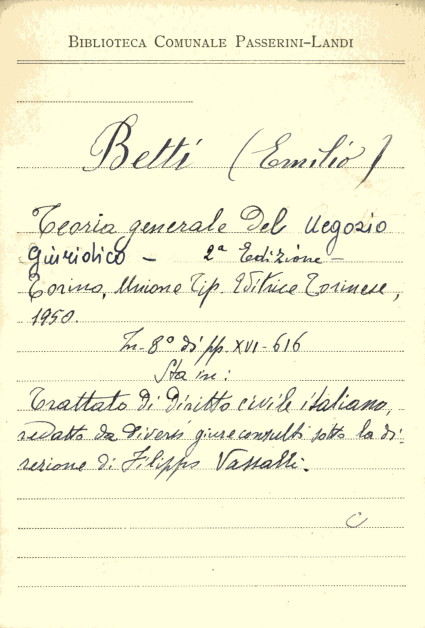 BIBLIOTECA COMUNALE PASSERINI-LANDI
Betti (Emilio)
Teoria generale del negozio
giuridico - 2ª Edizione -
Torino, Unione Tip. Editrice Torinese,
1950.
In-8° di pp. XVI-616
Sta in:
Trattato di diritto civile italiano,
redatto da diversi giureconsulti sotto la di-
rezione di Filippo Vassalli.
C